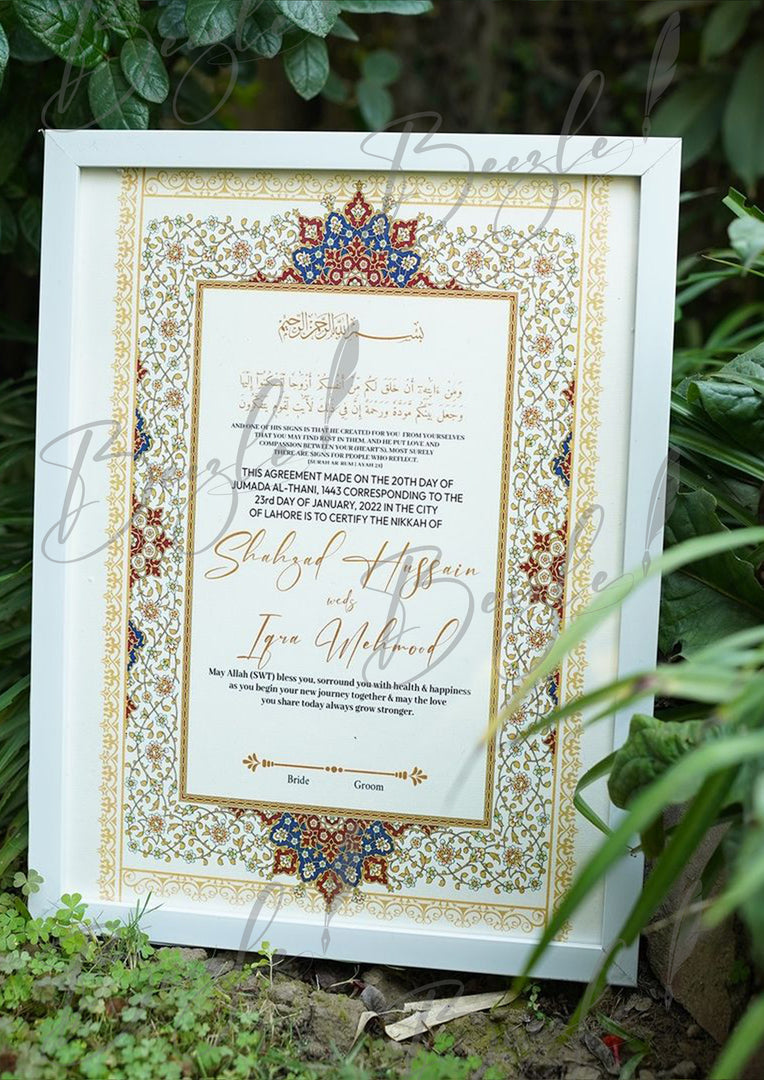 بسم الله الرحمن الرحيم
وَمِنْ ءَايَٰتِهِۦٓ أَنْ خَلَقَ لَكُم مِّنْ أَنفُسِكُمْ أَزْوَٰجًا لِّتَسْكُنُوٓا۟ إِلَيْهَا
وَجَعَلَ بَيْنَكُم مَّوَدَّةً وَرَحْمَةً إِنَّ فِى ذَٰلِكَ لَءَايَٰتٍ لِّقَوْمٍ يَتَفَكَّرُونَ
AND ONE OF HIS SIGNS IS THAT HE CREATED FOR YOU FROM YOURSELVES
THAT YOU MAY FIND REST IN THEM, AND HE PUT LOVE AND
COMPASSION BETWEEN YOUR (HEART'S), MOST SURELY
THERE ARE SIGNS FOR PEOPLE WHO REFLECT.
[SURAH AR-RUM | AYAH 21]
THIS AGREEMENT MADE ON THE 20TH DAY OF
JUMADA AL-THANI, 1443 CORRESPONDING TO THE
23rd DAY OF JANUARY, 2022 IN THE CITY
OF LAHORE IS TO CERTIFY THE NIKKAH OF
Shahzad Hussain
weds
Iqra Mehmood
May Allah (SWT) bless you, sorround you with health & happiness
as you begin your new journey together & may the love
you share today always grow stronger.
Bride Groom
Beezle
Beezle
Beezle